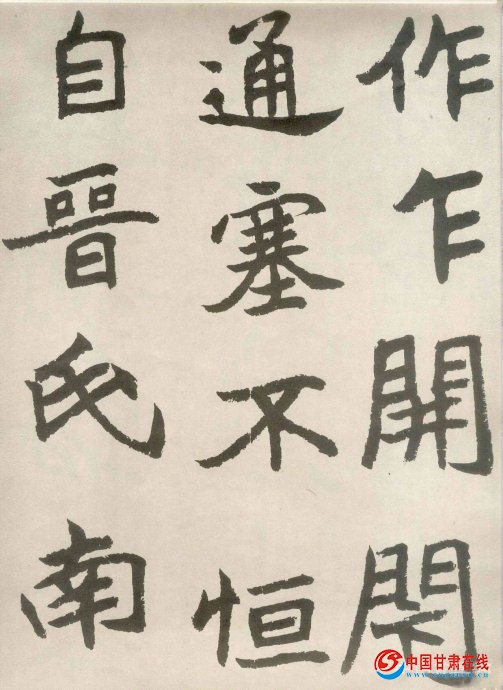 作乍開閇
通塞不恒
自晉氏南
中国甘肃在线